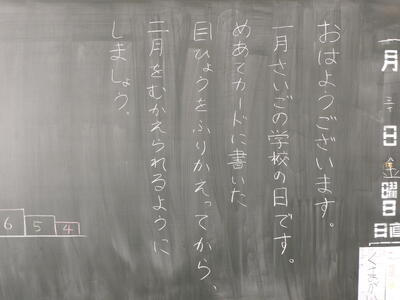 一月 三十 日 金曜日
日直
おはようございます。
一月さいごの学校の日です。
めあてカードに書いた
目ひょうをふりかえってから、
二月をむかえられるように
しましょう。
6 5 4